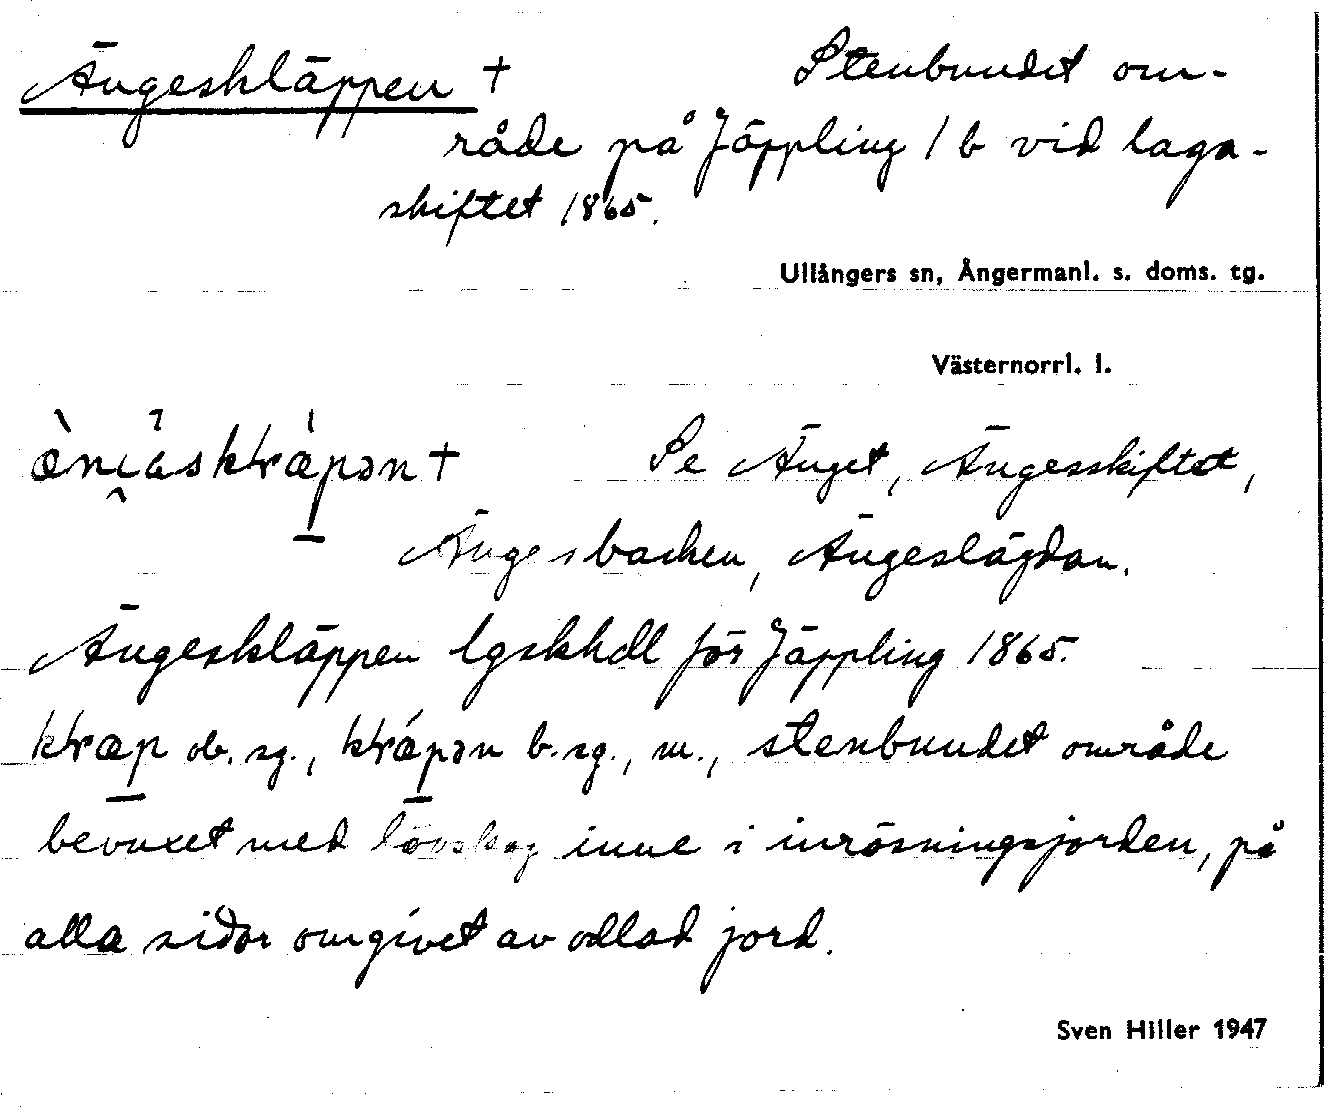 Ängeskläppen + Stenbundet om-
råde på Jäppling 1b vid laga-
skiftet 1865.
Ullångers sn, Ångermanl. s. doms. tg.
Västernorrl. l.
Se Änget, Ängesskiftet,
Ängesbacken, Ängeslägdan.
Ängeskläppen lgskhdl för Jäppling 1865.
ob. sg., b. sg., m., stenbundet område
bevuxet med lövskog inne i inrösningsjorden, på
alla sidor omgivet av odlad jord.
Sven Hiller 1947